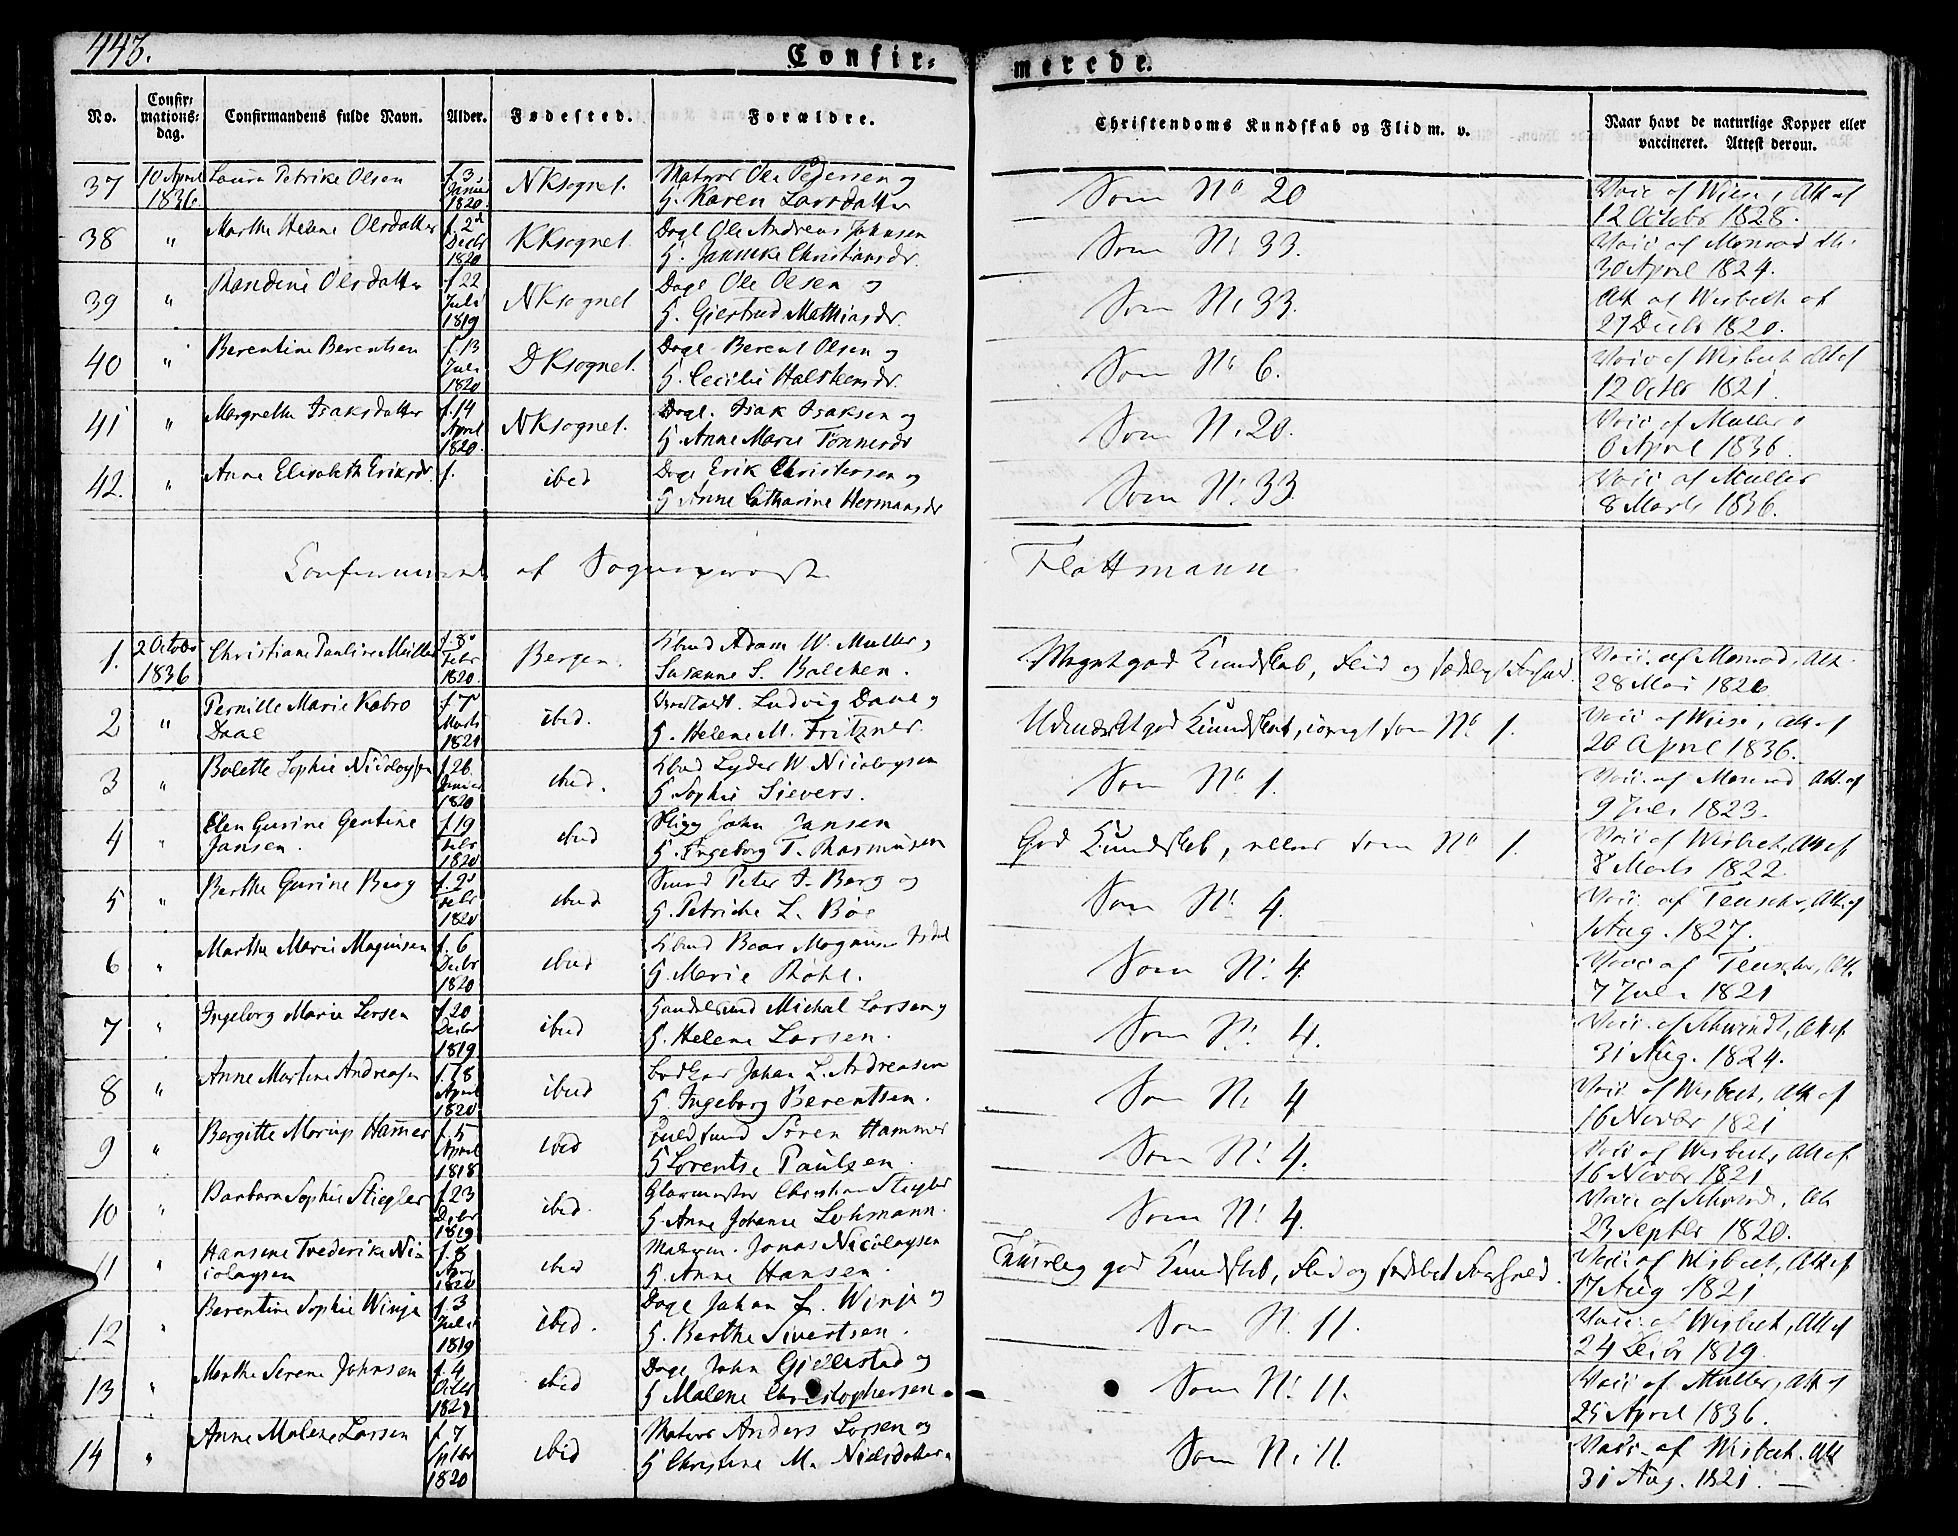 443.
Confir=
merede.
No.
Confir=
mations=
dag.
Confirmandens fulde Navn.
Alder.
Fødested.
Forældre.
Christendoms Kundskab og Flid m. v.
Naar havt de naturlige Kopper eller
vaccineret. Attest derom.
37 10 April 1836. Laura Petrike Olsen f. 3 1820. NKsognet. Matros Ole Pedersen og
H. Karen Larsdatter Som No 20 Vacc af Wiese, Att. af
12 Octobr 1828.
38 " Marthe Helene Olsdatter f. 2d Decbr 1820 KKsognet. Dagl Ole Andreas Johnsen
H. Jannike Christiansdr. Som No 33. Vacc af Monrad Att.
30 April 1824.
39 " Randine Olsdatter f. 22 Juli 1819 NKsognet Dagl Ole Olsen og
H. Giertrud Mathiasdr. Som No 33. Att af Wisbech af
27 Decbr 1820.
40 " Berentine Berentsen f. 13 Juli 1820 DKsognet. Dagl. Berent Olsen og
H. Cecilie Halsteensdr. Som No 6. Vacc af Wisbech Att af
12 Octbr 1821.
41 " Margrethe Isaksdatter f. 14 April 1820. NKsognet. Dagl. Isak Isaksen og
H Anne Marie Tønnesdr Som No 20. Vacc af Müller
6 April 1836.
42. " Anne Elisabeth Eriksdr. f. ibid Dagl Erik Christensen og
H Anne Catharine Hermansdr Som No 33. Vacc af Müller
8 Marts 1836.
af Sognepræst Flottmann
1. 2 Octobr 1836 Christiane Pauline Müller f. 8 Febr 1820. Bergen. Kbmd Adam W. Müller,
Susanne S. Balchen. Meget god Kundskab, Flid og Vacc. af Monrad, Att.
28 Mai 1826
2 " Pernille Marie Kabro
Daae f. 7 Marts 1821 ibid. Ludvig Daae og
H. Helene M. Fritzner. Udmærket god Kundskab, iøvrigt som No 1. Vacc af Wiese, Att. af
20 April 1836.
3 " Bolette Sophie Nicolaysen f. 26 Januar 1820 ibid. Kbmd Lyder W Nicolaysen
H Sophie Sievers. Som No 1. Vacc. af Monrad Att. af
9 Juli 1823.
4 " Elen Gurine Gentine
Jansen. f. 19 Febr 1820 ibid John Jansen
H. Ingeborg T. Rasmussen God Kundskab, ellers som No 1. Vacc af Wisbech, Att af
8 Marts 1822.
5 " Berthe Gurine Berg f. 2d Febr 1820 ibid Peter J. Berg og
H. Petriche L. Bøe Som No 4. Vacc. af Teuscher, Att. af
Aug. 1827.
6 " Marthe Marie Magnusen f. 6 Decbr 1820 ibid Kbmd Baar Magnus
H. Marie Røhl. Som No 4. Vacc af Teuscher, Att.
7 Juli 1821
7 " Ingeborg Marie Larsen f. 20 Decbr 1819 ibid Handelsmd Michal Larsen og
H. Helene Larsen. Som No 4. Vacc. af Schwindt, Att af
31 Aug. 1824.
8 " Anne Martine Andreasen f. 18 April 1820 ibid Bødker Johan L. Andreasen
H. Ingeborg Berentsen. Som No 4 Vacc af Wisbech, Att af
16 Novbr 1821
9 " Bergitte Morup Hammer f. 5 April 1818 ibid Guldsmd Søren Hammer
H Lorentse Paulsen. Som No 4. Vacc. af Wisbech, Att af
16 Novbr 1821
10 " Barbara Sophie Stiegler f. 23 Decbr 1819 ibid. Glarmester Christian Stiegler
H. Anne Johanne Lohmann. Som No 4. Vacc af Schwindt, Att
23 Septbr 1820.
11 " Hansene Frederike Ni=
colaysen f. 8 1820 ibid Jonas Nicolaysen
H. Anne Hansen. Temmelig god Kundskab, Flid og sædeligt Forhold. Vacc. af Wisbech, Att af
17 Aug 1821
12 " Berentine Sophie Winje f. 3 Juli 1819 ibid. Dagl Johan L. Winje og
H. Berthe Sivertsen. Som No 11. Vacc. af Wisbech, Att af
24 1819.
13 " Marthe Serene Johnsen f. 4 Octbr ibid Dagl John Gjellestad og
H Malene Christophersen Som No 11. Vacc af Müller, Att af
25 April 1836.
14 " Anne Malene Larsen f. 7 Septbr 1820 ibid Matros Anders Larsen og
H Christine M. Nielsdatter Som No 11. Vacc. af Wisbech. Att
31 Aug. 1821.